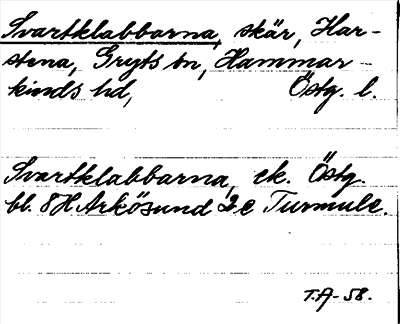 Svartklabbarna, skär, Har-
stena, Gryts sn, Hammar-
kinds hd, Östg. l.
Svartklabbarna, ek. Östg.
bl. 8H Arkösund 2 e Turmule.
T.A-58.